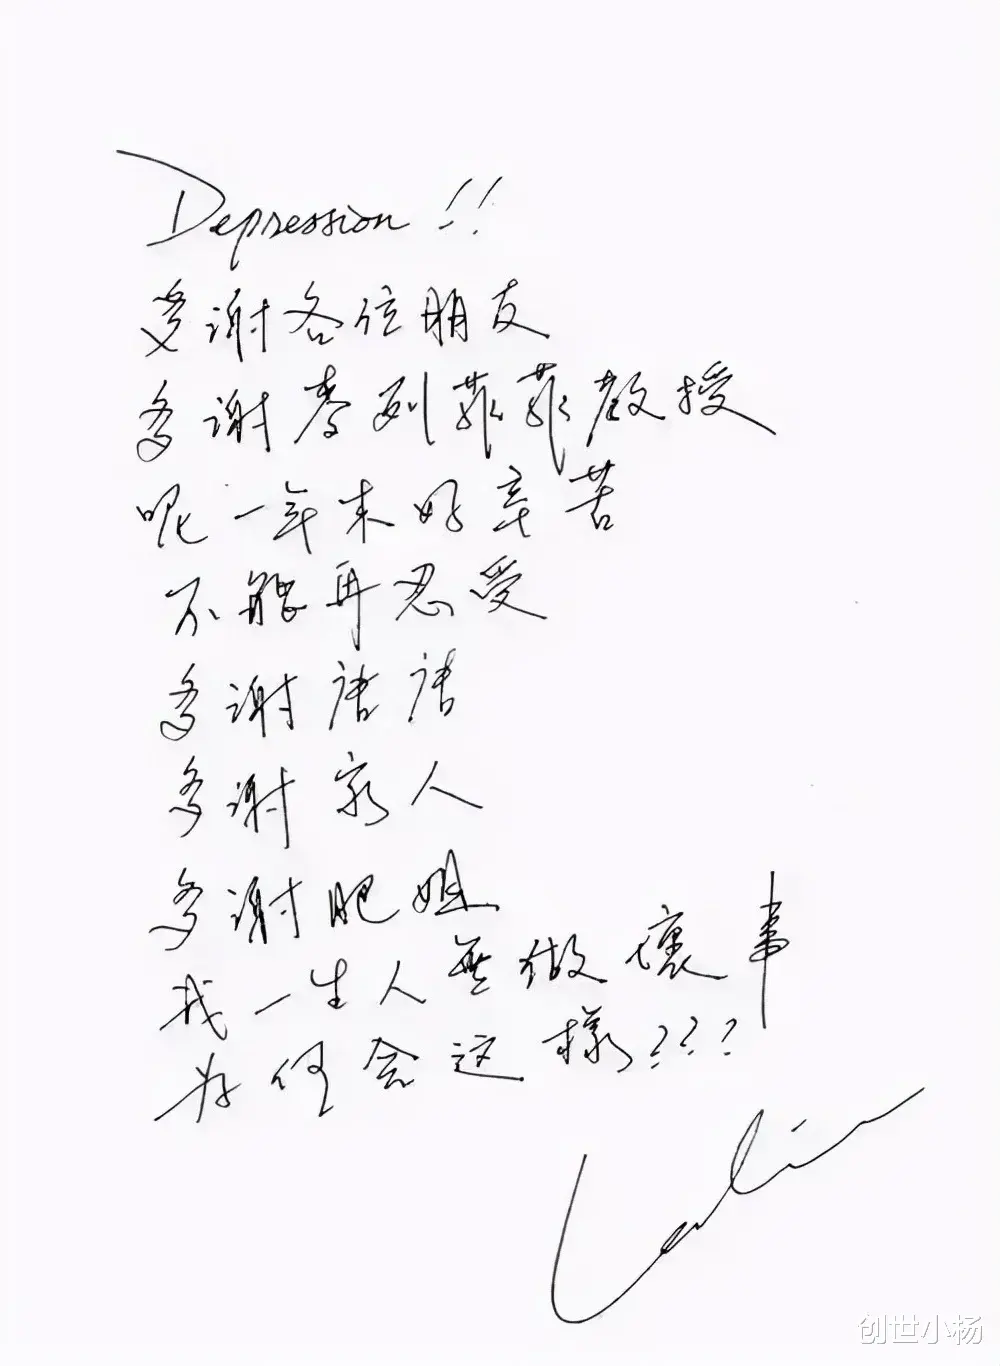 Depression!!
多谢各位朋友
多谢李列菲菲教授
呢一年来好辛苦
不能再忍受
多谢唐唐
多谢家人
多谢肥姐
我一生人無做壞事
为何会这樣???
Leslie
创世小杨